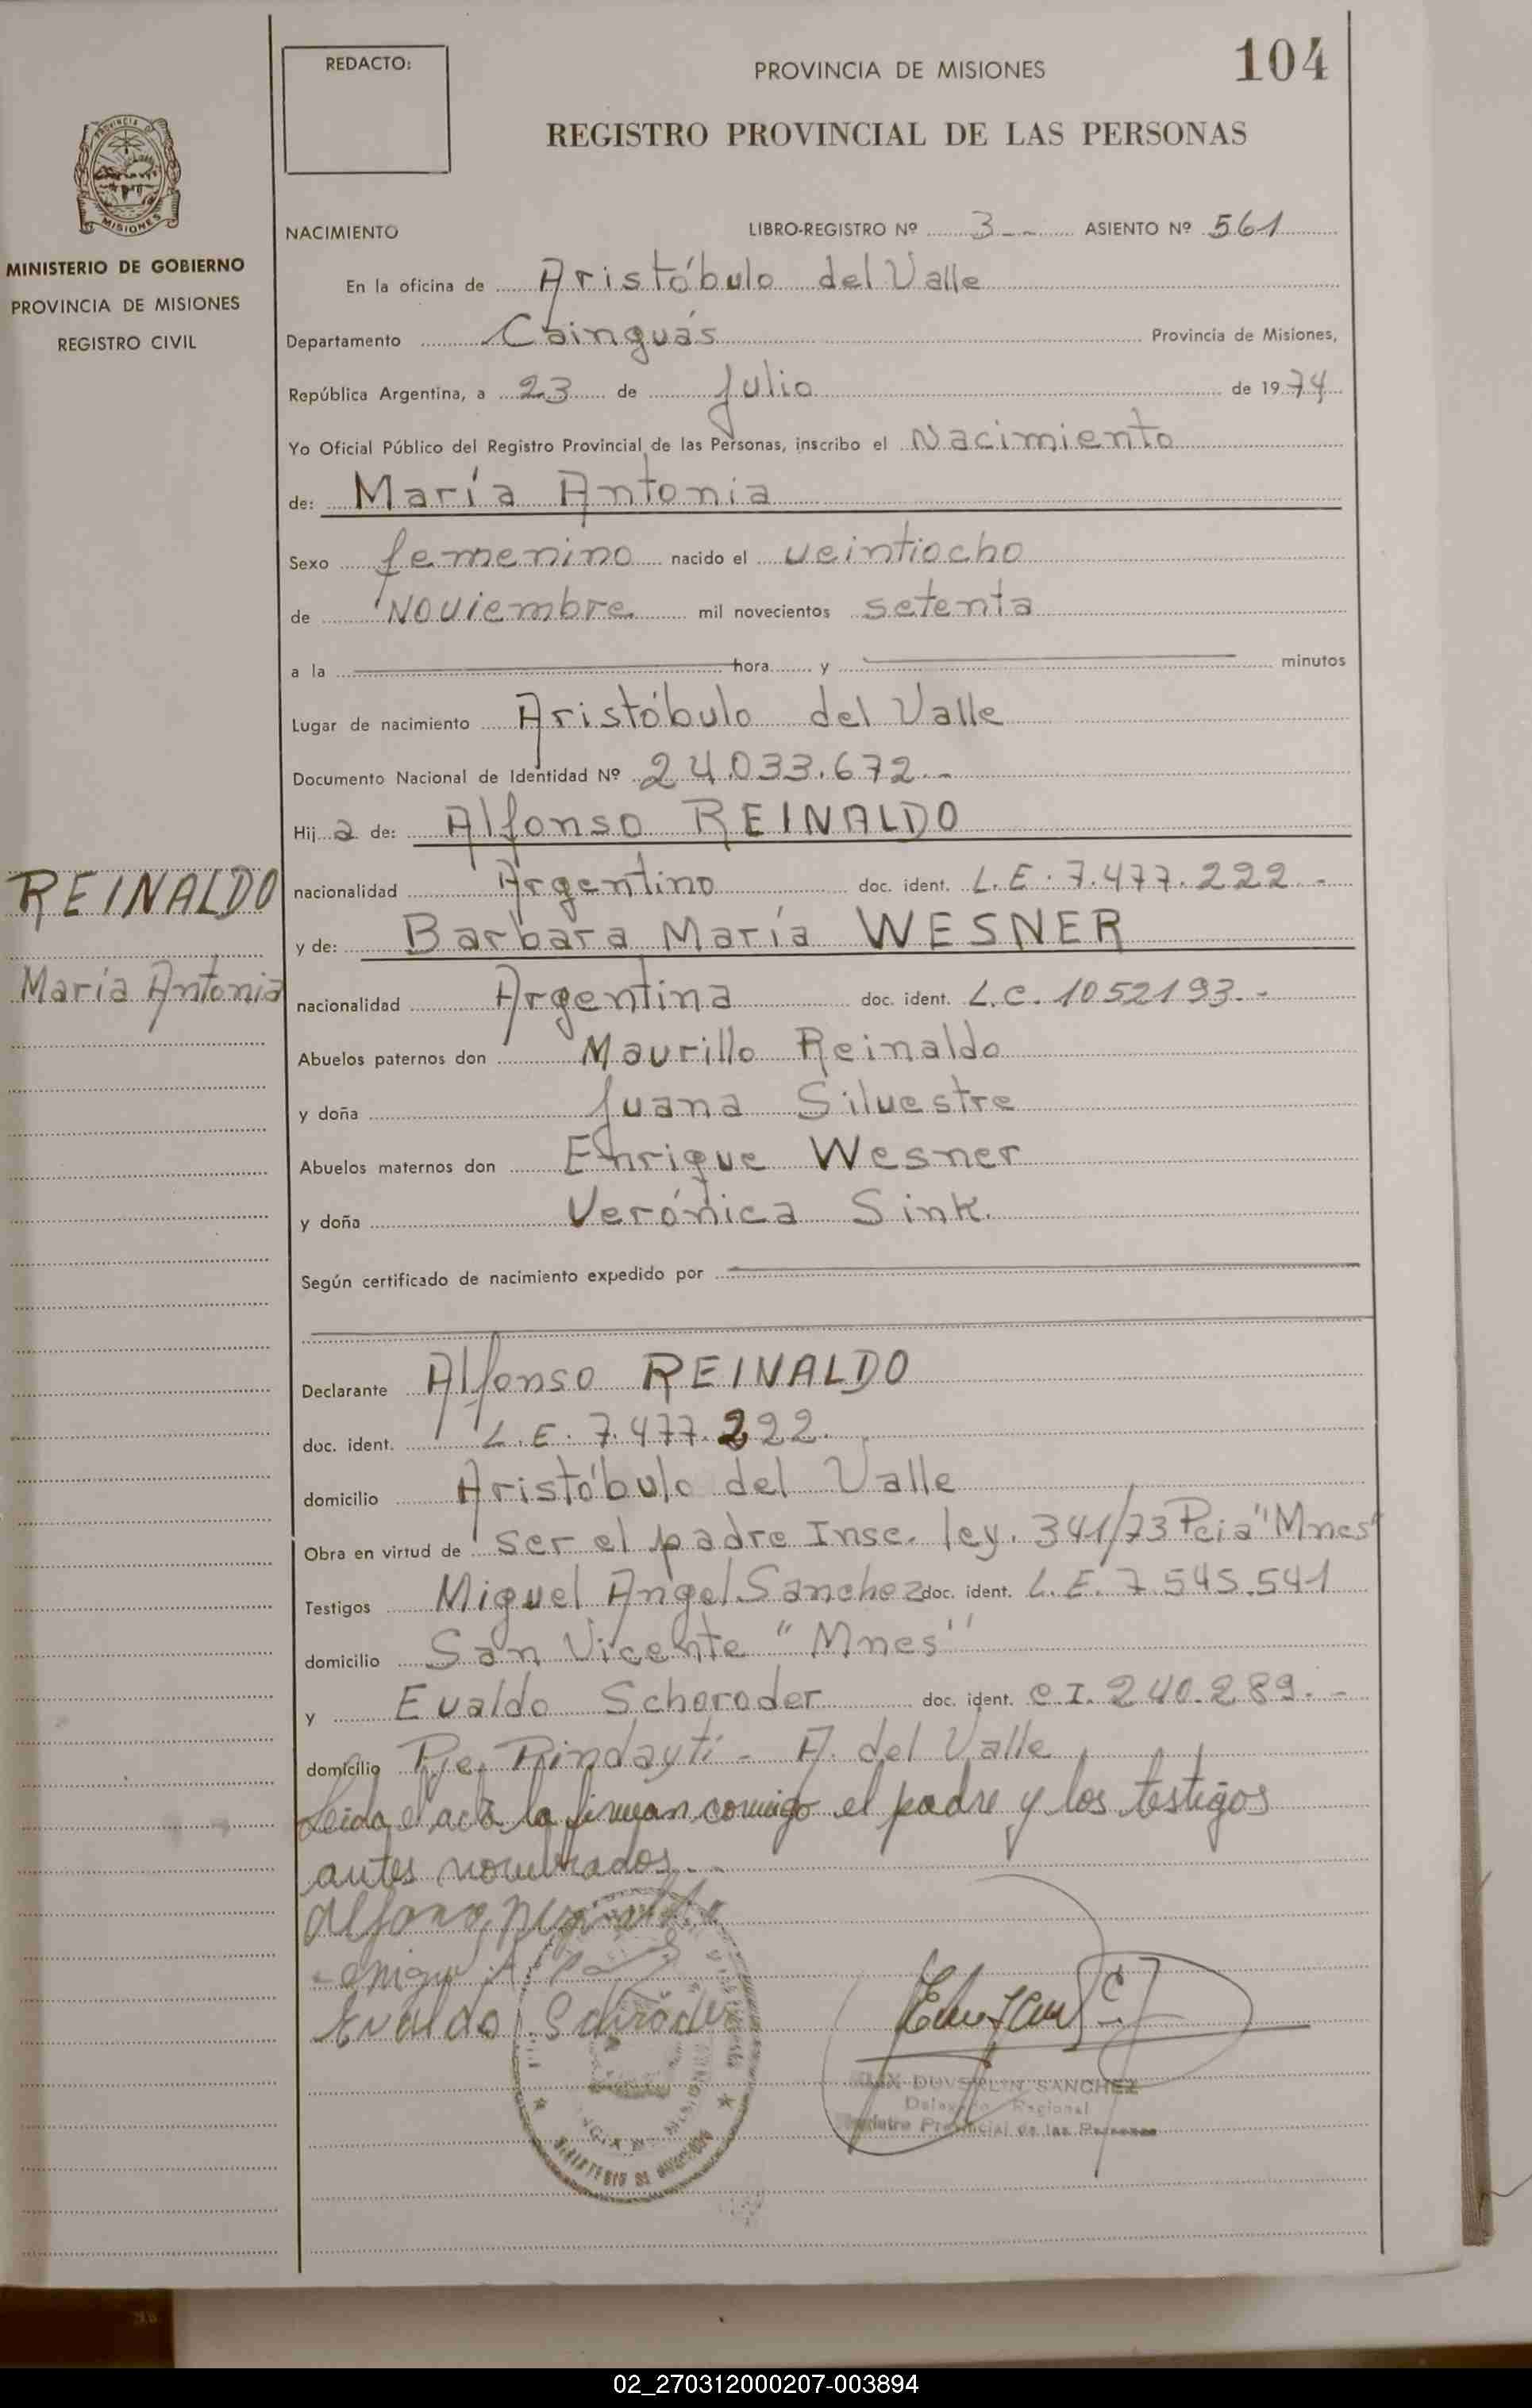 104
REDACTO:
PROVINCIA DE MISIONES
REGISTRO PROVINCIAL DE LAS PERSONAS
PROVINCIA DE
MISIONES
MINISTERIO DE GOBIERNO
PROVINCIA DE MISIONES
REGISTRO CIVIL
NACIMIENTO LIBRO-REGISTRO Nº 3 -- ASIENTO Nº 561
En la oficina de Aristóbulo del Valle
Departamento Cainguás Provincia de Misiones,
República Argentina, a 23 de Julio de 1974
Yo Oficial Público del Registro Provincial de las Personas, inscribo el Nacimiento
de: María Antonia
Sexo femenino nacido el veintiocho
de Noviembre mil novecientos setenta
a la hora y minutos
Lugar de nacimiento Aristóbulo del Valle
Documento Nacional de Identidad Nº 24.033.672.-
Hij a de: Alfonso REINALDO
nacionalidad Argentino doc. ident. L.E. 7.477.222 -
y de: Barbara María WESNER
nacionalidad Argentina doc. ident. L.C. 1052193.-
REINALDO
María Antonia
Abuelos paternos don Maurillo Reinaldo
y doña Juana Silvestre
Abuelos maternos don Enrique Wesner
y doña Verónica Sink.
Según certificado de nacimiento expedido por
Declarante Alfonso REINALDO
doc. ident. L.E. 7.477.222.
domicilio Aristóbulo del Valle
Obra en virtud de ser el padre Insc. ley. 341/73 Pcia "Mnes"
Testigos Miguel Angel Sanchez doc. ident. L.E. 7.545.541
domicilio San Vicente "Mnes"
y Evaldo Schoroder doc. ident. C.I. 240.289.-
domicilio Pje. Pindaytí - A. del Valle
Leida el acta la firman conmigo el padre y los testigos
antes nombrados.-
Evaldo Schröder
DUVERLIN SANCHEZ
Delegado Regional
Registro Provincial de las Personas
MINISTERIO DE GOBIERNO
02_270312000207-003894